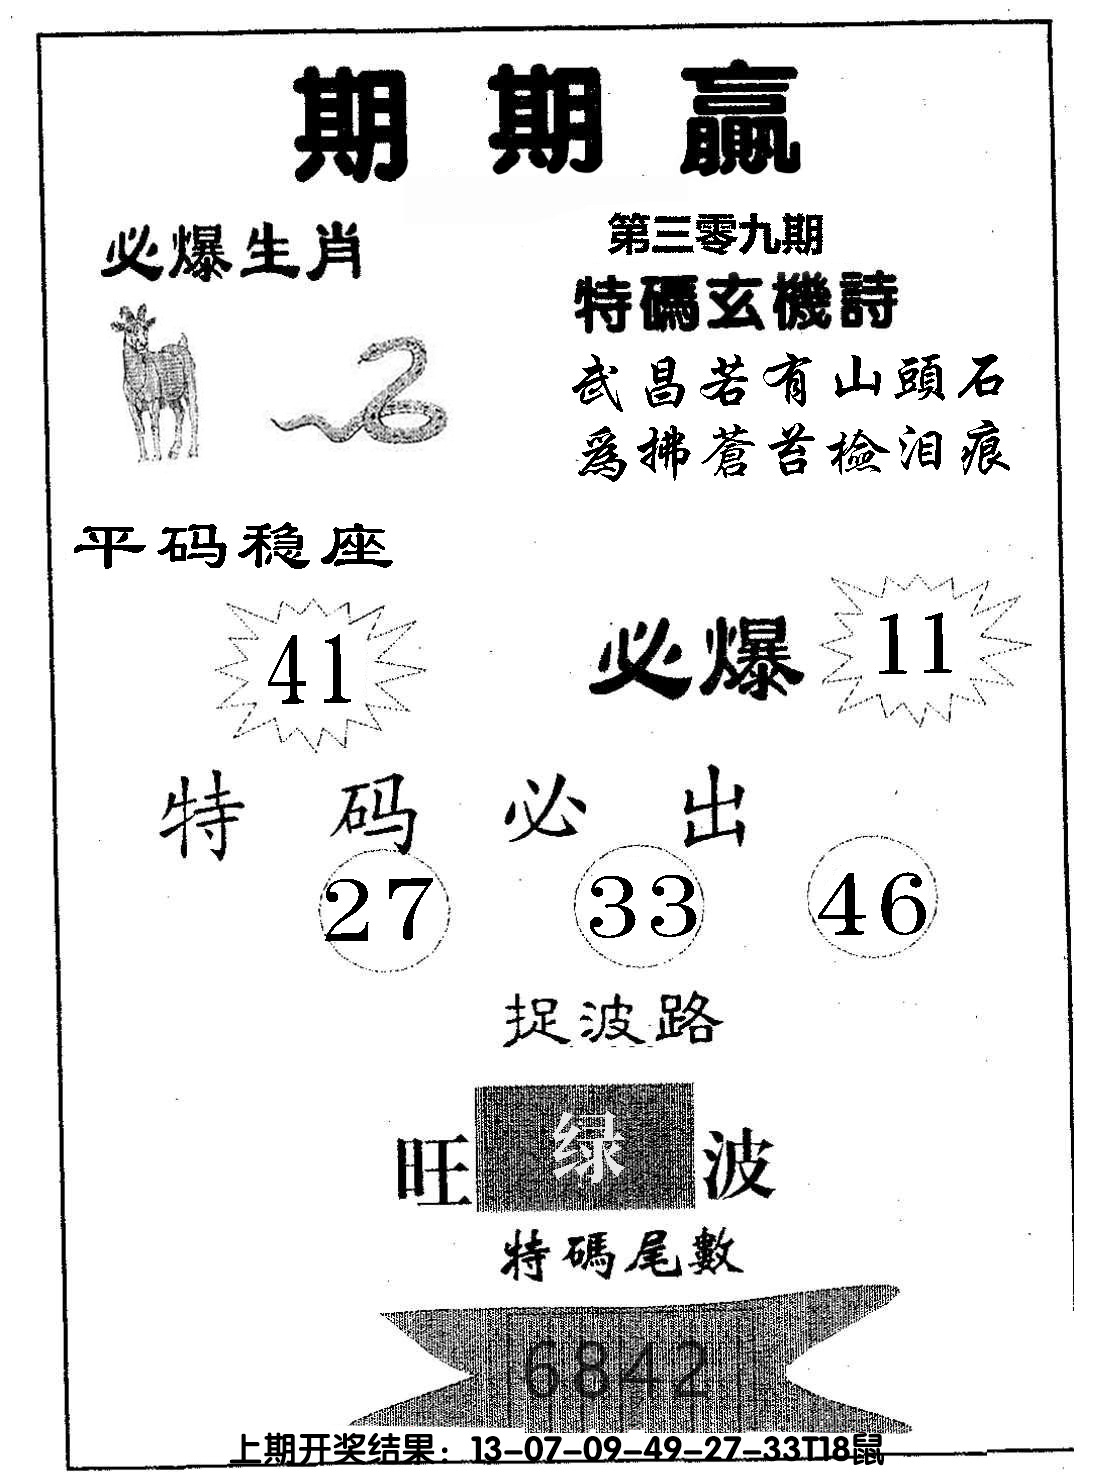 期期赢
必爆生肖
第三零九期
特碼玄機詩
武昌若有山頭石
爲拂蒼苔檢泪痕
平码稳座
41
必爆 11
特码必出
27 33 46
捉波路
旺 绿 波
特碼尾數
6842
上期开奖结果：13-07-09-49-27-33T18鼠